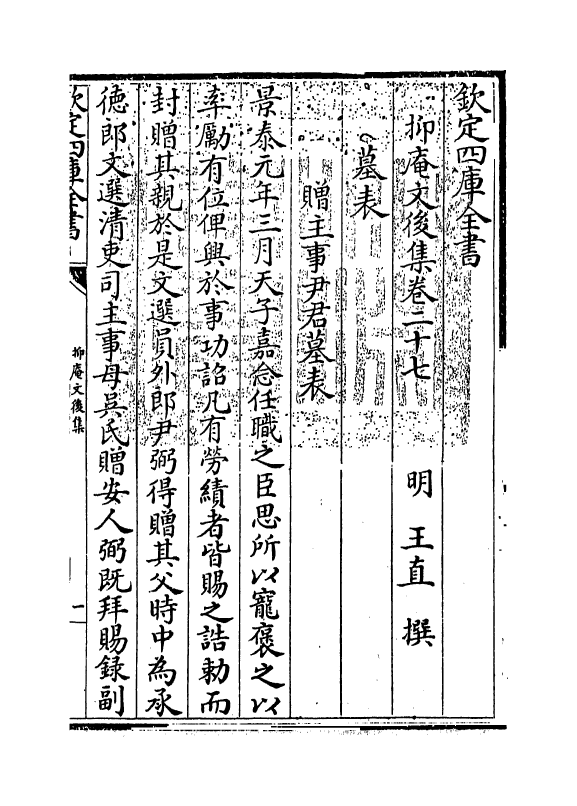 欽定四庫全書
抑庵文後集卷二十七
明 王直 撰
墓表
贈主事尹君墓表
景泰元年三月天子嘉念任職之臣思所以寵褒之以
率勵有位俾興於事功詔凡有勞績者皆賜之誥勅而
封贈其親於是文選員外郎尹弼得贈其父時中為承
徳郎文選清吏司主事母吳氏贈安人弼既拜賜錄副
欽定四庫全書
抑庵文後集
一